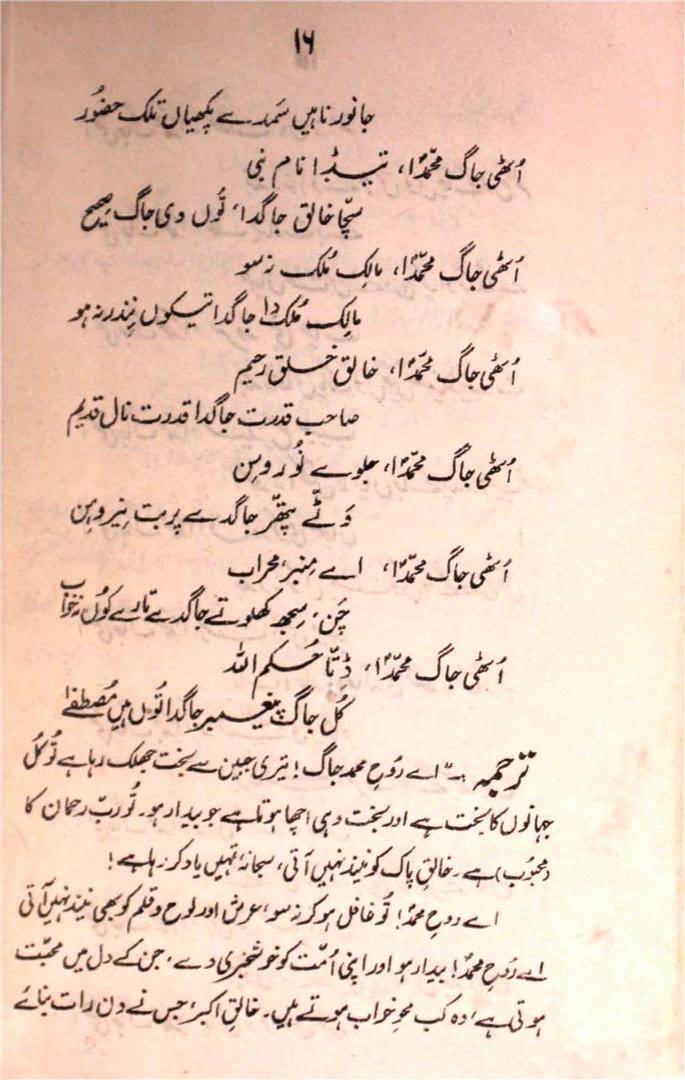 ۱۶
جانور ناہیں سَمدے پکھیاں تلک حضُور
اُٹھی جاگ محمّدؐا، تیڈا نام نبی
سچّا خالق جاگدا، تُوں دی جاگ صحیح
اُٹھی جاگ محمّدؐا، مالِک مُلک نہ سو
مالِک مُلک دا جاگدا تیکوں نِندر نہ ہو
اُٹھی جاگ محمّدؐا، خالق خلق رحیم
صاحب قدرت جاگدا قدرت نال قدیم
اُٹھی جاگ محمّدؐا، جلوے نُور وہِن
وَٹے پتھّر جاگدے پربت نِیر وہِن
اُٹھی جاگ محمّدؐا، اے مِنبر، محراب
چَن، سِجھ کھلوتے جاگدے تارے کوں نہ خواب
اُٹھی جاگ محمّدؐا، ڈِتّا حُکم اللہ
کُل جاگ پیغمبر جاگدا تُوں ہیں مُصطفےٰ
ترجمہ :۔ "اے رُوحِ محمد جاگ! تیری جبین سے بخت جھلک رہا ہے تُو کُل
جہانوں کا بخت ہے اور بخت وہی اچھا ہوتا ہے جو بیدار ہو۔ تُو ربّ رحمان کا
(محبُوب) ہے۔ خالقِ پاک کو نیند نہیں آتی، سبحانہٗ تمہیں یاد کر رہا ہے!
اے روحِ محمدؐ! تُو غافل ہو کر نہ سو، عرش اور لوح و قلم کو بھی نیند نہیں آتی
اے رُوحِ محمدؐ! بیدار ہو اور اپنی اُمّت کو خوشخبری دے، جن کے دل میں محبّت
ہوتی ہے، وہ کب محوِ خواب ہوتے ہیں۔ خالقِ اکبر، جس نے دن رات بنائے